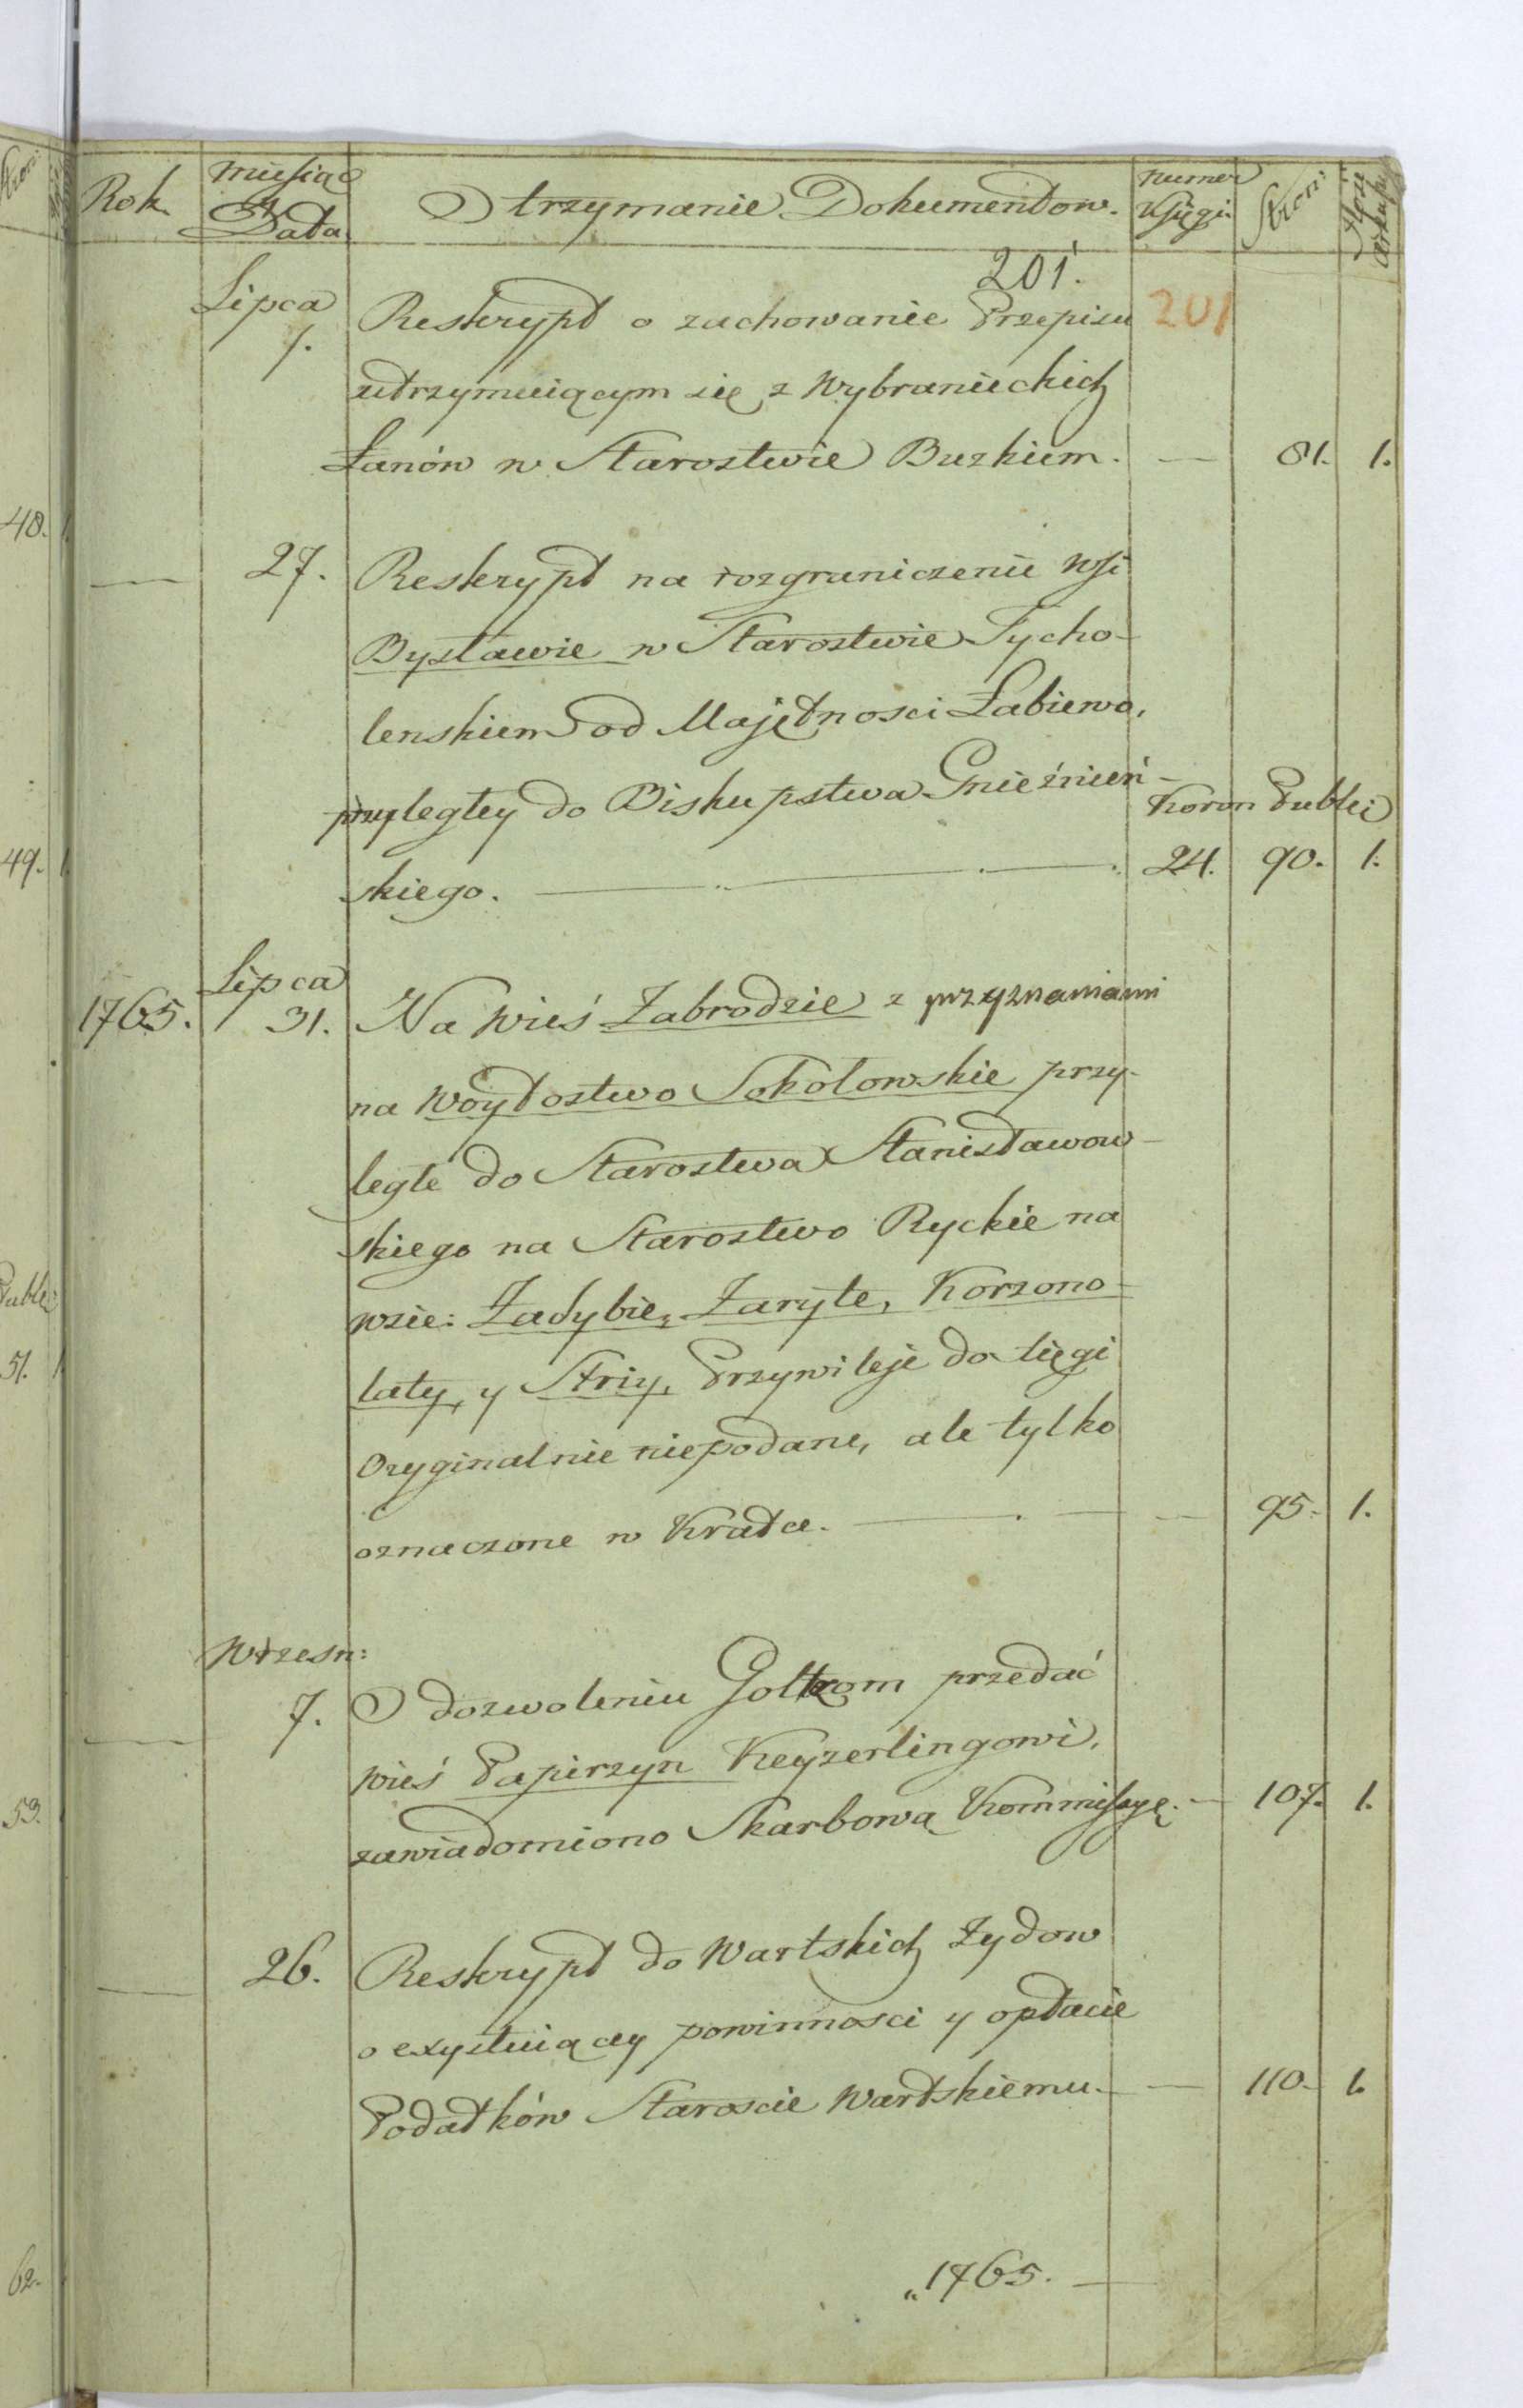 Rok
Miesiąc
Data
Otrzymanie Dokumentow.
Numer
Księgi
Stron:
201.
201
Lipca
1.
Reskrypt o zachowanie Przepisu
utrzymuiącym się z Wybranieckich
Łanów w Starostwie Buzkiem. — 81. 1.
— 27. Reskrypt na rozgraniczenie wsi
Bysławie w Starostwie Tycho-
lenskiem od Majętnosci Łabiewo,
przyległey do Biskupstwa Gnieźnień-
Koron Publci
skiego. — 24. 90. 1.
Lipca
1765. 31. Na wieś Zabrodzie z przyznaniami
na Woytostwo Sokolowskie przy-
ległe do Starostwa Stanisławow-
skiego na Starostwo Ryckie na
wsie: Zadybie, Zaryte, Korzono-
laty, y Striy, Przywileje do xięgi
Oryginalnie niepodane, ale tylko
oznaczone w Kratce. — 95. 1.
Wrzesn:
— 7. O dozwoleniu Goltzom przedać
wieś Papirzyn Keyzerlingowi,
zawiadomiono Skarbową Kommissyę. — 107. 1.
— 26. Reskrypt do Wartskich Żydow
o exystuiącey powinnosci y opłacie
Podatków Staroscie Wartskiemu. — 110. 1.
„1765. —
40. 1.
49. 1.
Publci
51. 1.
53.
62.